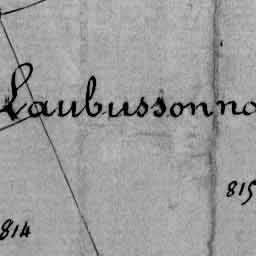 Laubussonna
815
814